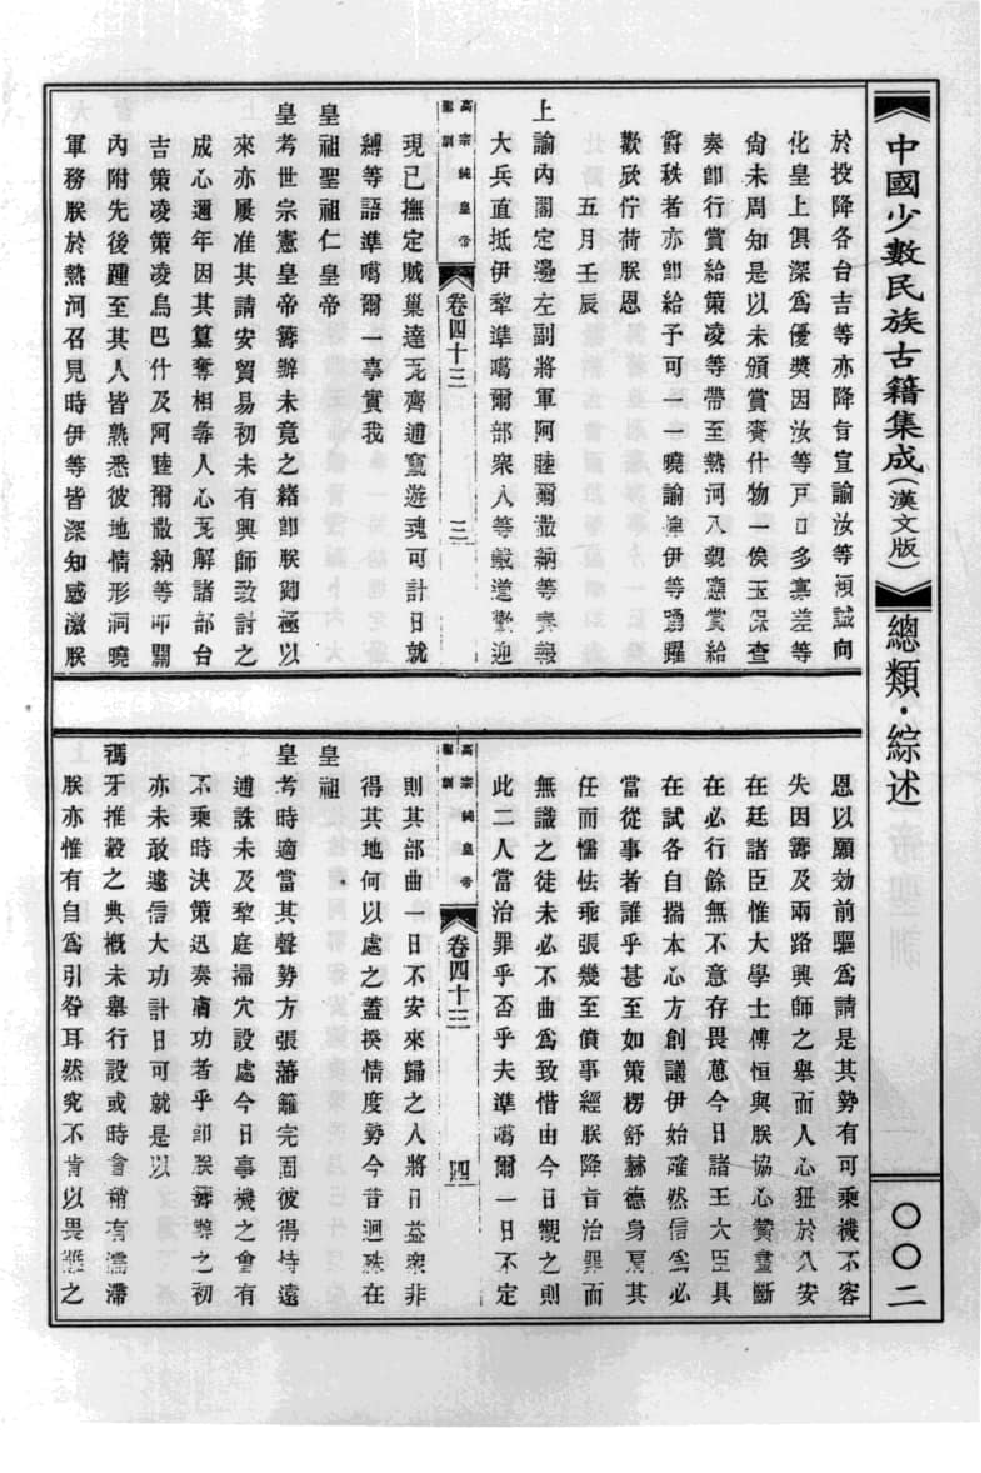 中國少數民族古籍集成(漢文版)
總類·綜述
〇〇二
於投降各台吉等亦降旨宣諭汝等傾誠向
化皇上俱深爲優獎因汝等戶口多寡差等
尙未周知是以未頒賞賚什物一俟玉保查
奏卽行賞給策凌等帶至熱河入覲應賞給
爵秩者亦卽給予可一一曉諭車伊等踴躍
歡欣佇荷朕恩
五月壬辰
上諭內閣定邊左副將軍阿睦爾撒納等奏報
大兵直抵伊犂準噶爾部衆人等載道歡迎
高宗純皇帝
聖訓
卷四十三
三
現已撫定賊巢達瓦齊逋竄遊魂可計日就
縛等語準噶爾一事實我
皇祖聖祖仁皇帝
皇考世宗憲皇帝籌辦未竟之緒卽朕御極以
來亦屢准其請安貿易初未有興師致討之
成心邇年因其篡奪相尋人心瓦解諸部台
吉策凌策凌烏巴什及阿睦爾撒納等叩關
內附先後踵至其人皆熟悉彼地情形洞曉
軍務朕於熱河召見時伊等皆深知感激朕
恩以願効前驅爲請是其勢有可乘機不容
失因籌及兩路興師之舉而人心狃於久安
在廷諸臣惟大學士傅恒與朕協心贊畫斷
在必行餘無不意存畏葸今日諸王大臣具
在試各自揣本心方創議伊始確然信爲必
當從事者誰乎甚至如策楞舒赫德身膺其
任而懦怯乖張幾至僨事經朕降旨治罪而
無識之徒未必不曲爲致惜由今日觀之則
此二人當治罪乎否乎夫準噶爾一日不定
高宗純皇帝
聖訓
卷四十三
四
則其部曲一日不安來歸之人將日益衆非
得其地何以處之蓋揆情度勢今昔迥殊在
皇祖
皇考時適當其聲勢方張藩籬完固彼得恃遠
逋誅未及犂庭掃穴設處今日事機之會有
不乘時決策迅奏膚功者乎卽朕籌辦之初
亦未敢遽信大功計日可就是以
禡牙推轂之典槪未舉行設或時會稍有濡滯
朕亦惟有自爲引咎耳然究不肯以畏難之